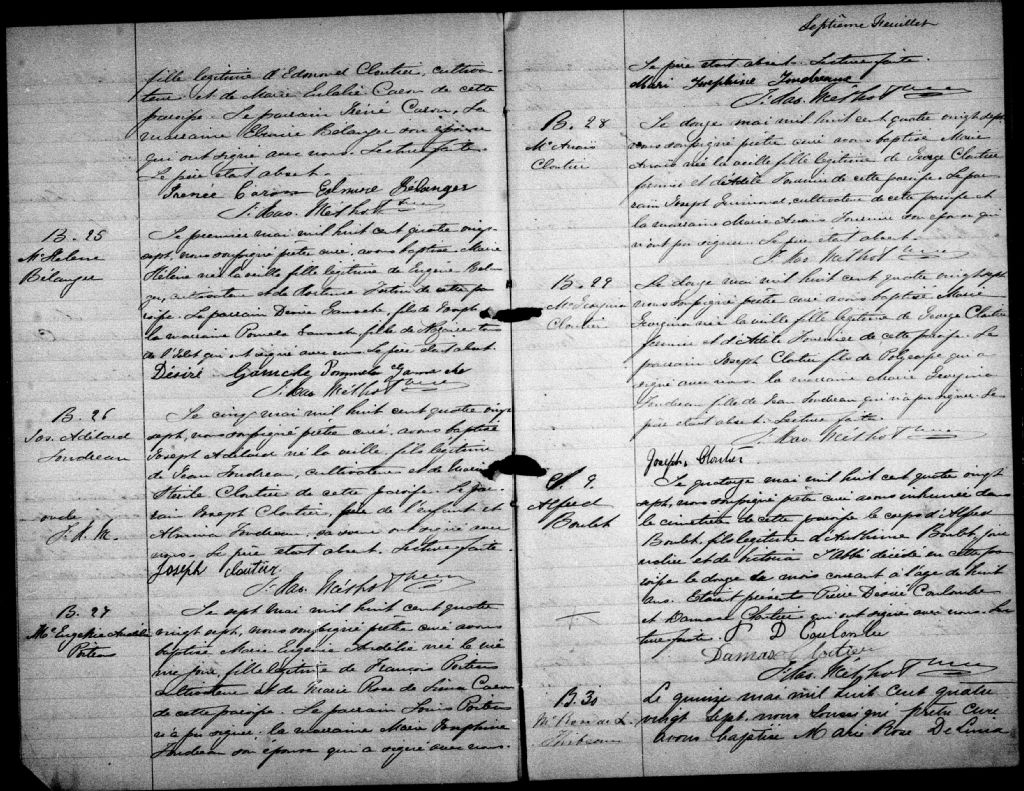 fille legitime d'Edmond Cloutier, cultiva-
teur et de Marie Eulalie Caron de cette
paroisse. Le parrain Irénée Caron, La
marraine Bélanger son épouse
qui ont signé avec nous. Lecture faite.
Le père était absent.
Irenée Caron Bélanger
J. Nas. Méthot Ptre
B. 25
Me Helene
Bélanger
Le premier mai mil huit cent quatre vingt
sept, nous soussigné prêtre curé, avons baptisé Marie
Hélène née la veille fille legitime de Eugène Belan-
ger, cultivateur et de Fortin de cette pa-
roisse. Le parrain Désiré Gamache, fils de Joseph
la marraine Gamache, fille de
de l'Islet qui ont signé avec nous. Le père était absent.
Désiré Gamache Gamache
J. Nas. Méthot Ptre
B. 26
Jos. Adélard
Jondreau
oncle
J. N. M.
Le cinq mai mil huit cent quatre vingt
sept, nous soussigné prêtre curé, avons baptisé
Joseph Adelard né la veille, fils legitime
de Jean Jondreau, cultivateur et de Marie
Cloutier de cette paroisse. Le par-
rain Joseph Cloutier, de l'enfant et
Jondreau, sa soeur ont signé avec
nous. Le père était absent. Lecture faite.
Joseph Cloutier
J. Nas. Méthot Ptre
B. 27
Me Eugénie
Poitras
Le sept mai mil huit cent quatre
vingt sept, nous soussigné prêtre curé avons
baptisé Marie Eugenie née le mê-
me jour, fille legitime de François Poitras
cultivateur et de Marie Rose de Lima Caron
de cette paroisse. Le parrain Louis Poitras
n'a pu signer. la marraine Marie Josephine
Jondreau son épouse qui a signé avec nous.
Septième Feuillet
Le père était absent. Lecture faite.
Marie Josephine Jondreau
J. Nas. Méthot Ptre
B. 28
Me Anaïs
Cloutier
Le douze mai mil huit cent quatre vingt sept
nous soussigné prêtre curé avons baptisé Marie
Anaïs née la veille fille legitime de George Cloutier
fermier et d'Adèle Fournier de cette paroisse. Le par-
rain Joseph cultivateur de cette paroisse et
la marraine Marie Anaïs Fournier son épouse qui
n'ont pu signer. Le père était absent.
J. Nas. Méthot Ptre
B. 29
Me Georgina
Cloutier
Le douze mai mil huit cent quatre vingt sept
nous soussigné prêtre curé avons baptisé Marie
Georgina née la veille fille legitime de George Cloutier
fermier et d'Adèle Fournier de cette paroisse. Le
parrain Joseph Cloutier fils de Polycarpe qui a
signé avec nous la marraine Marie Georgina
Jondreau fille de Jean Jondreau qui n'a pu signer. Le
père était absent. Lecture faite
J. Nas. Méthot Ptre
Joseph Cloutier
S 9.
Alfred
Boulet
Le quatorze mai mil huit cent quatre vingt
sept, nous soussigné prêtre curé avons inhumé dans
le cimetière de cette paroisse le corps d'Alfred
Boulet fils legitime d'Anthime Boulet, jour-
nalier et de Victoria décédé en cette pa-
roisse le douze de mois courant à l'âge de huit
ans. Etaient présents Pierre Désiré Coulombe
et Damase Cloutier qui ont signé avec nous. Lec-
ture faite. P D Coulombe
Damase Cloutier
J. Nas. Méthot Ptre
B. 30
Me Rose de L.
Thibault
Le quinze mai mil huit cent quatre
vingt sept, nous soussigné prêtre curé
avons baptisé Marie Rose De Lima